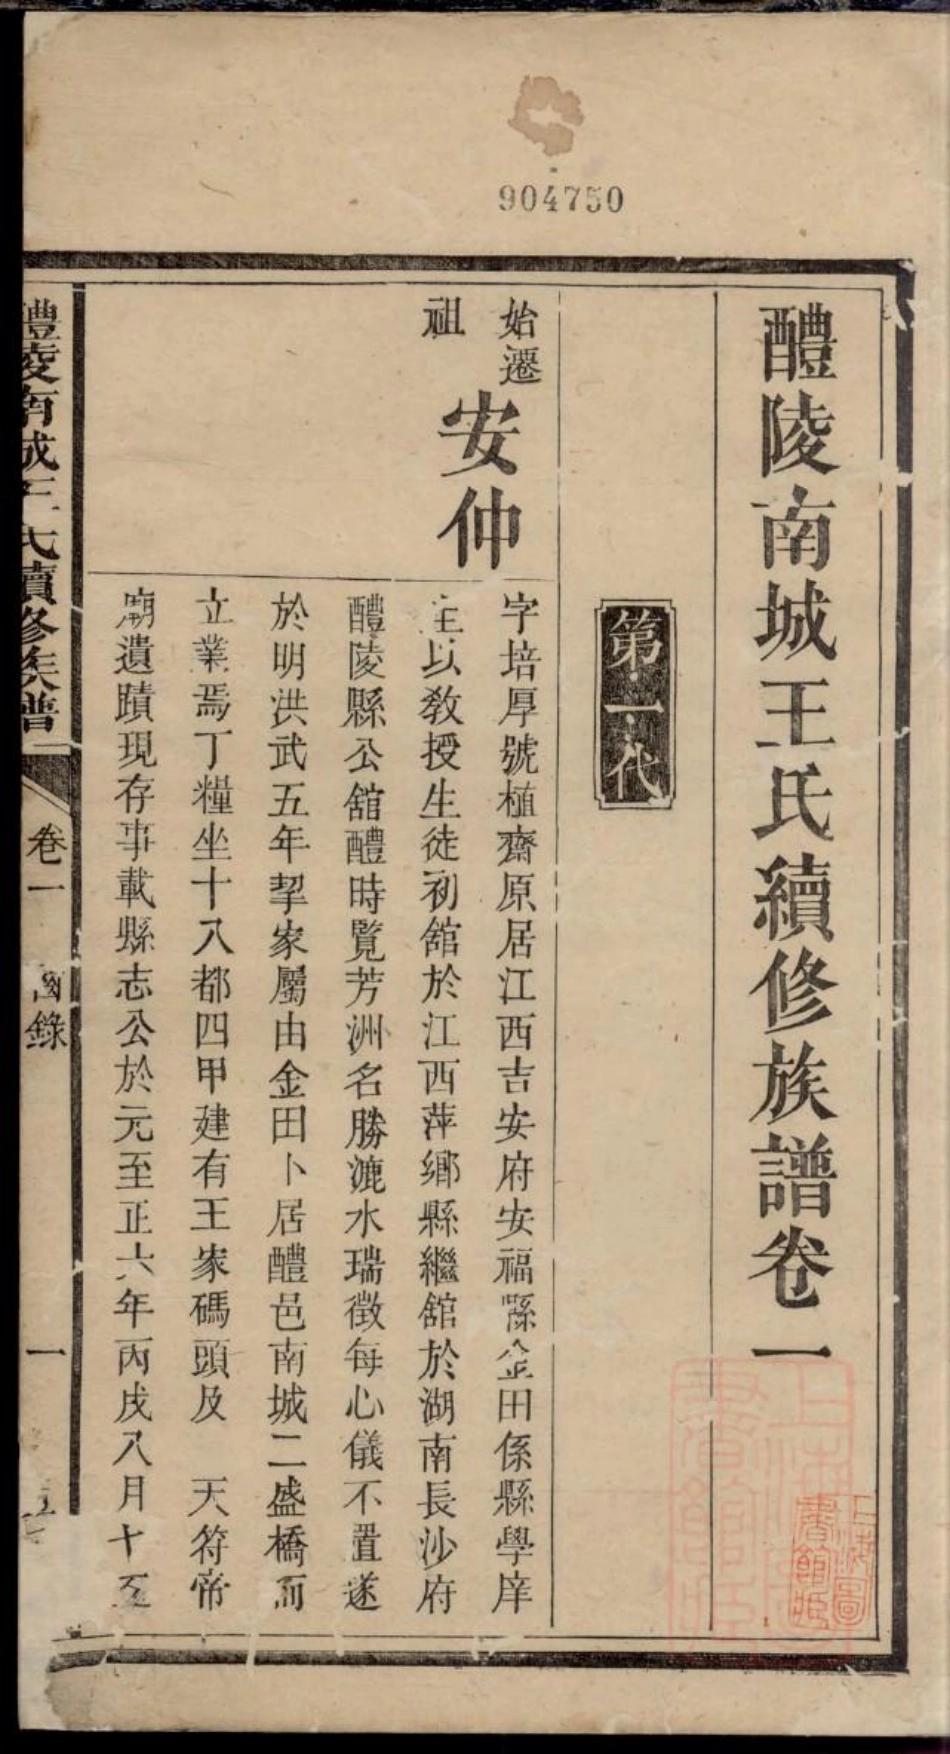 904750
醴陵南城王氏續修族譜卷一
第一代
始遷
祖
安仲
字培厚號植齋原居江西吉安府安福縣金田係縣學庠
生以敎授生徒初舘於江西萍鄉縣繼舘於湖南長沙府
醴陵縣公舘醴時覽芳洲名勝漉水瑞徵每心儀不置遂
於明洪武五年挈家屬由金田卜居醴邑南城二盛橋而
立業焉丁糧坐十八都四甲建有王家碼頭及 天符帝
廟遺蹟現存事載縣志公於元至正六年丙戌八月十五
醴陵南城王氏續修族譜
卷一
齒錄
一
上海圖書館藏